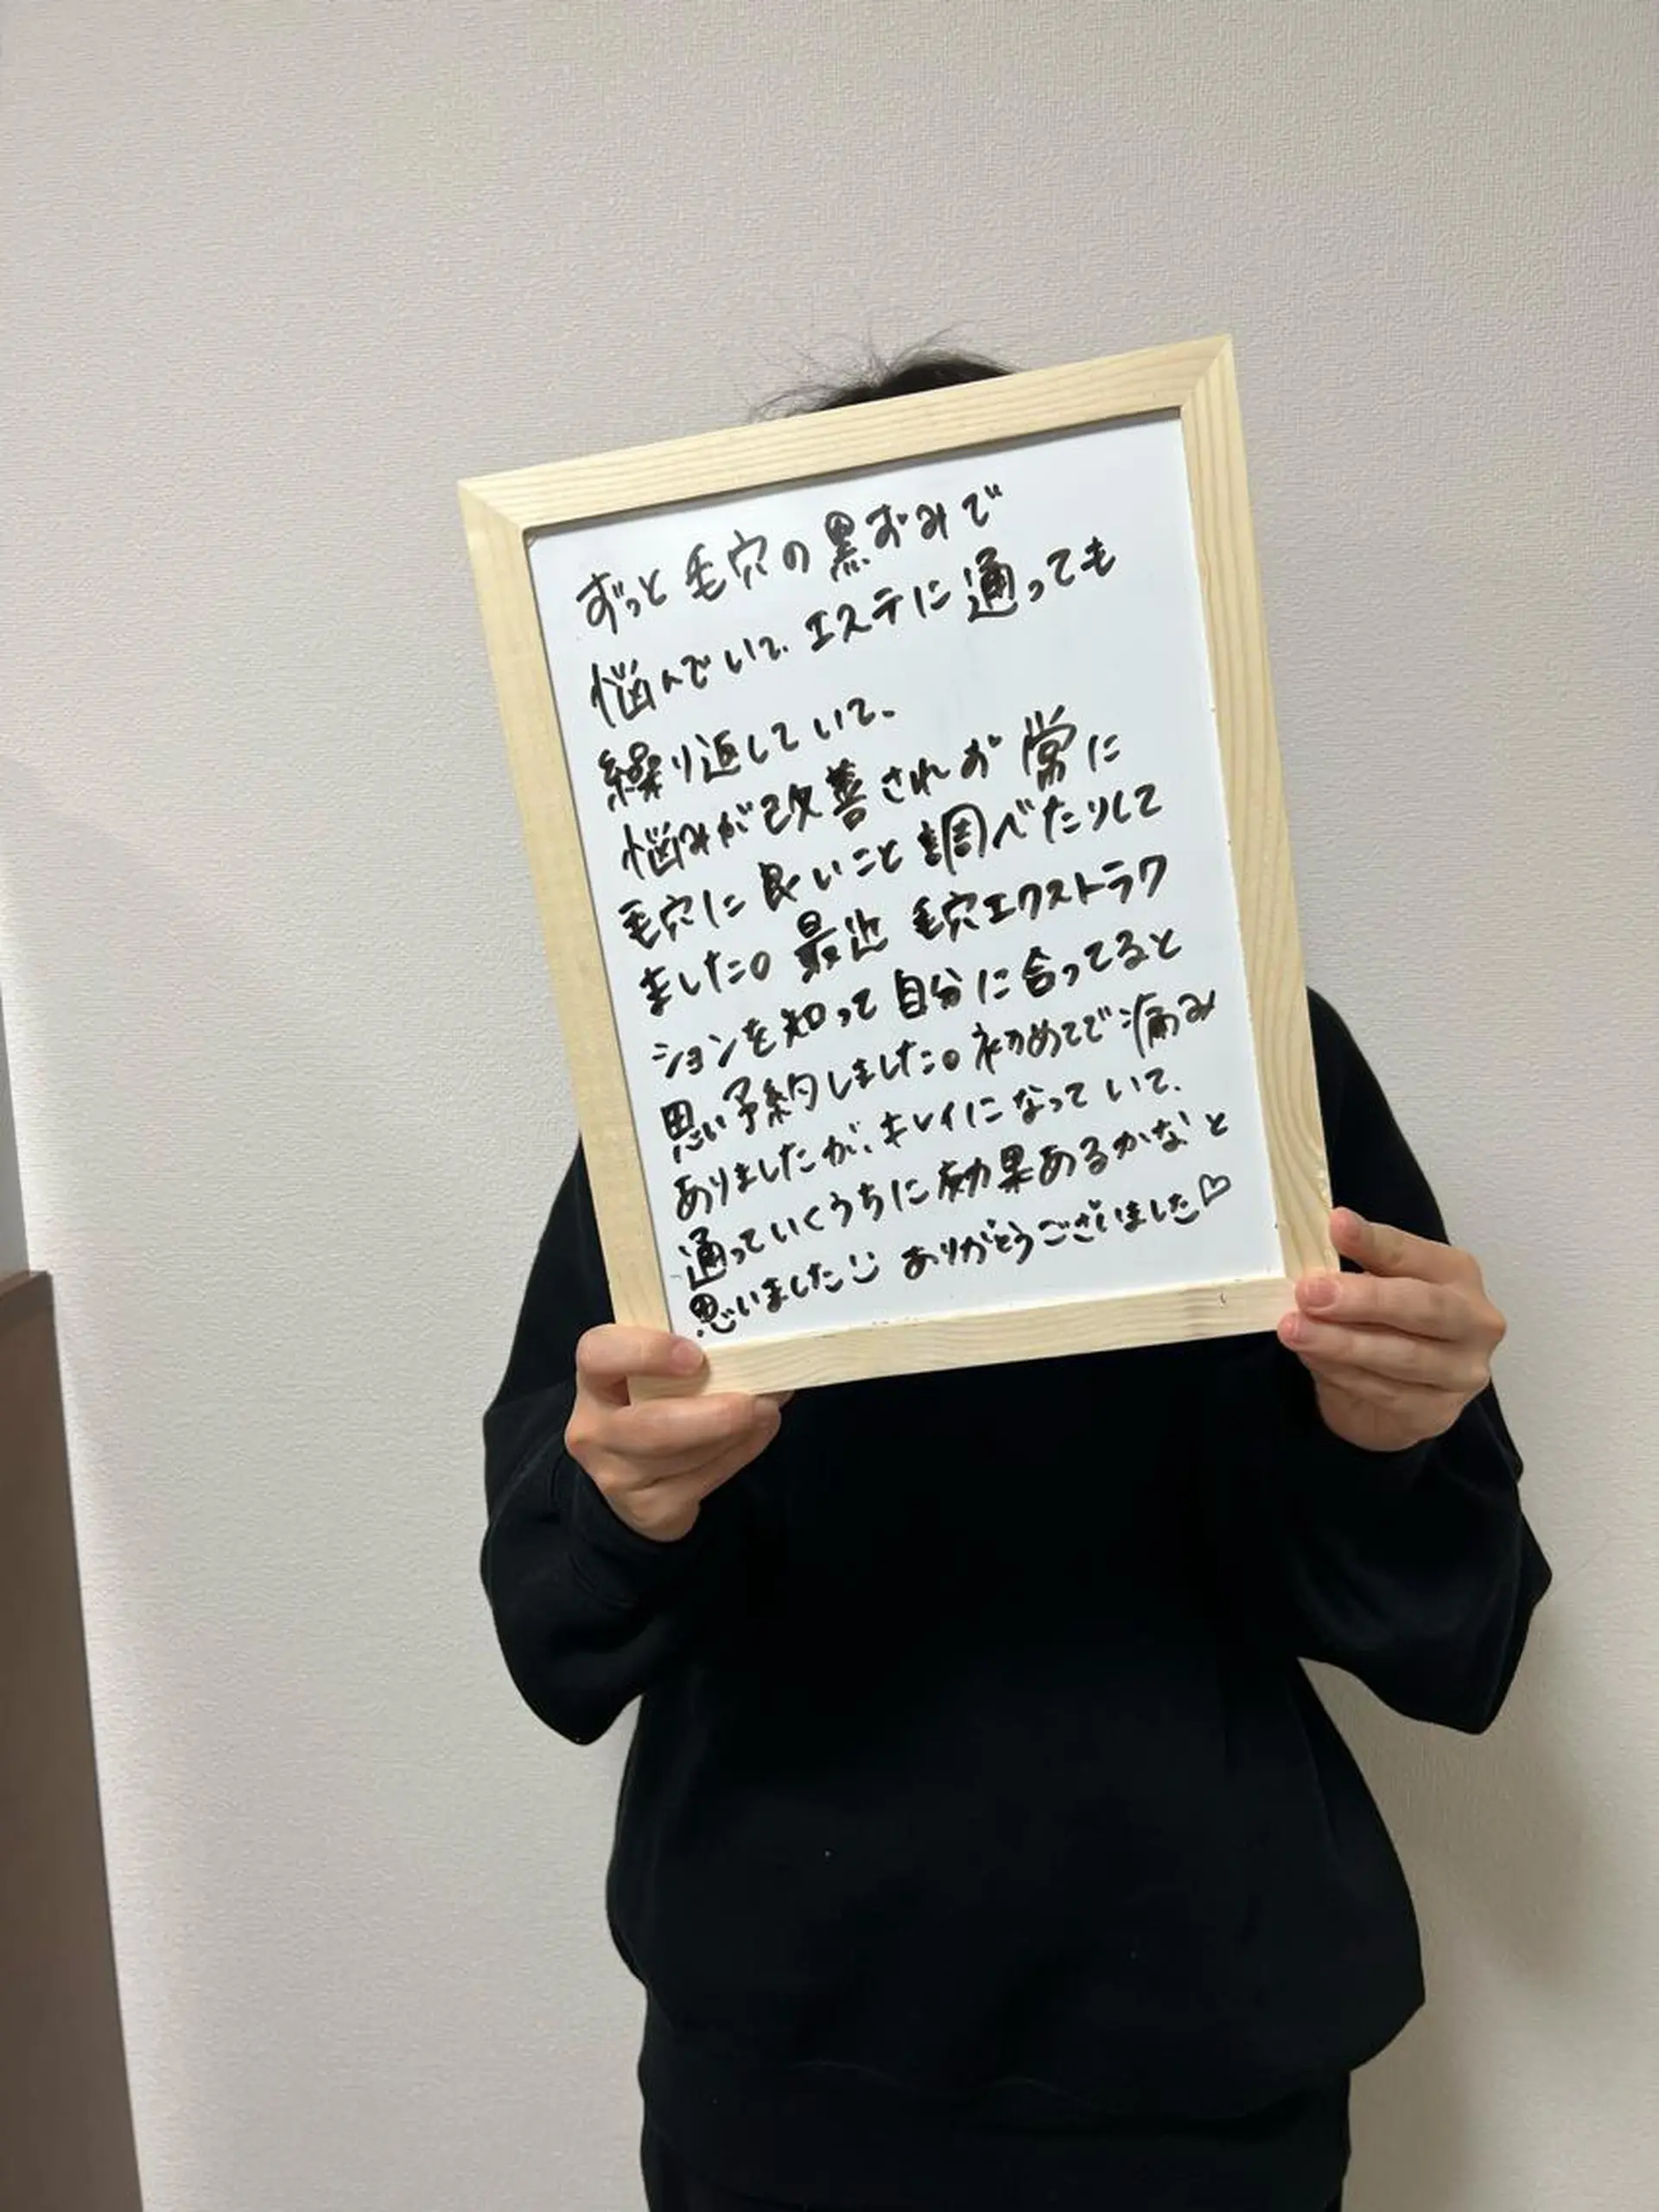 ずっと毛穴の黒ずみで
悩んでいて、エステに通っても
繰り返していて、
悩みが改善されず常に
毛穴に良いこと調べたりして
ました。最近毛穴エクストラク
ションを知って自分に合ってると
思い予約しました。初めてで痛み
ありましたが、キレイになっていて、
通っていくうちに効果あるかなと
思いました ありがとうございました♡